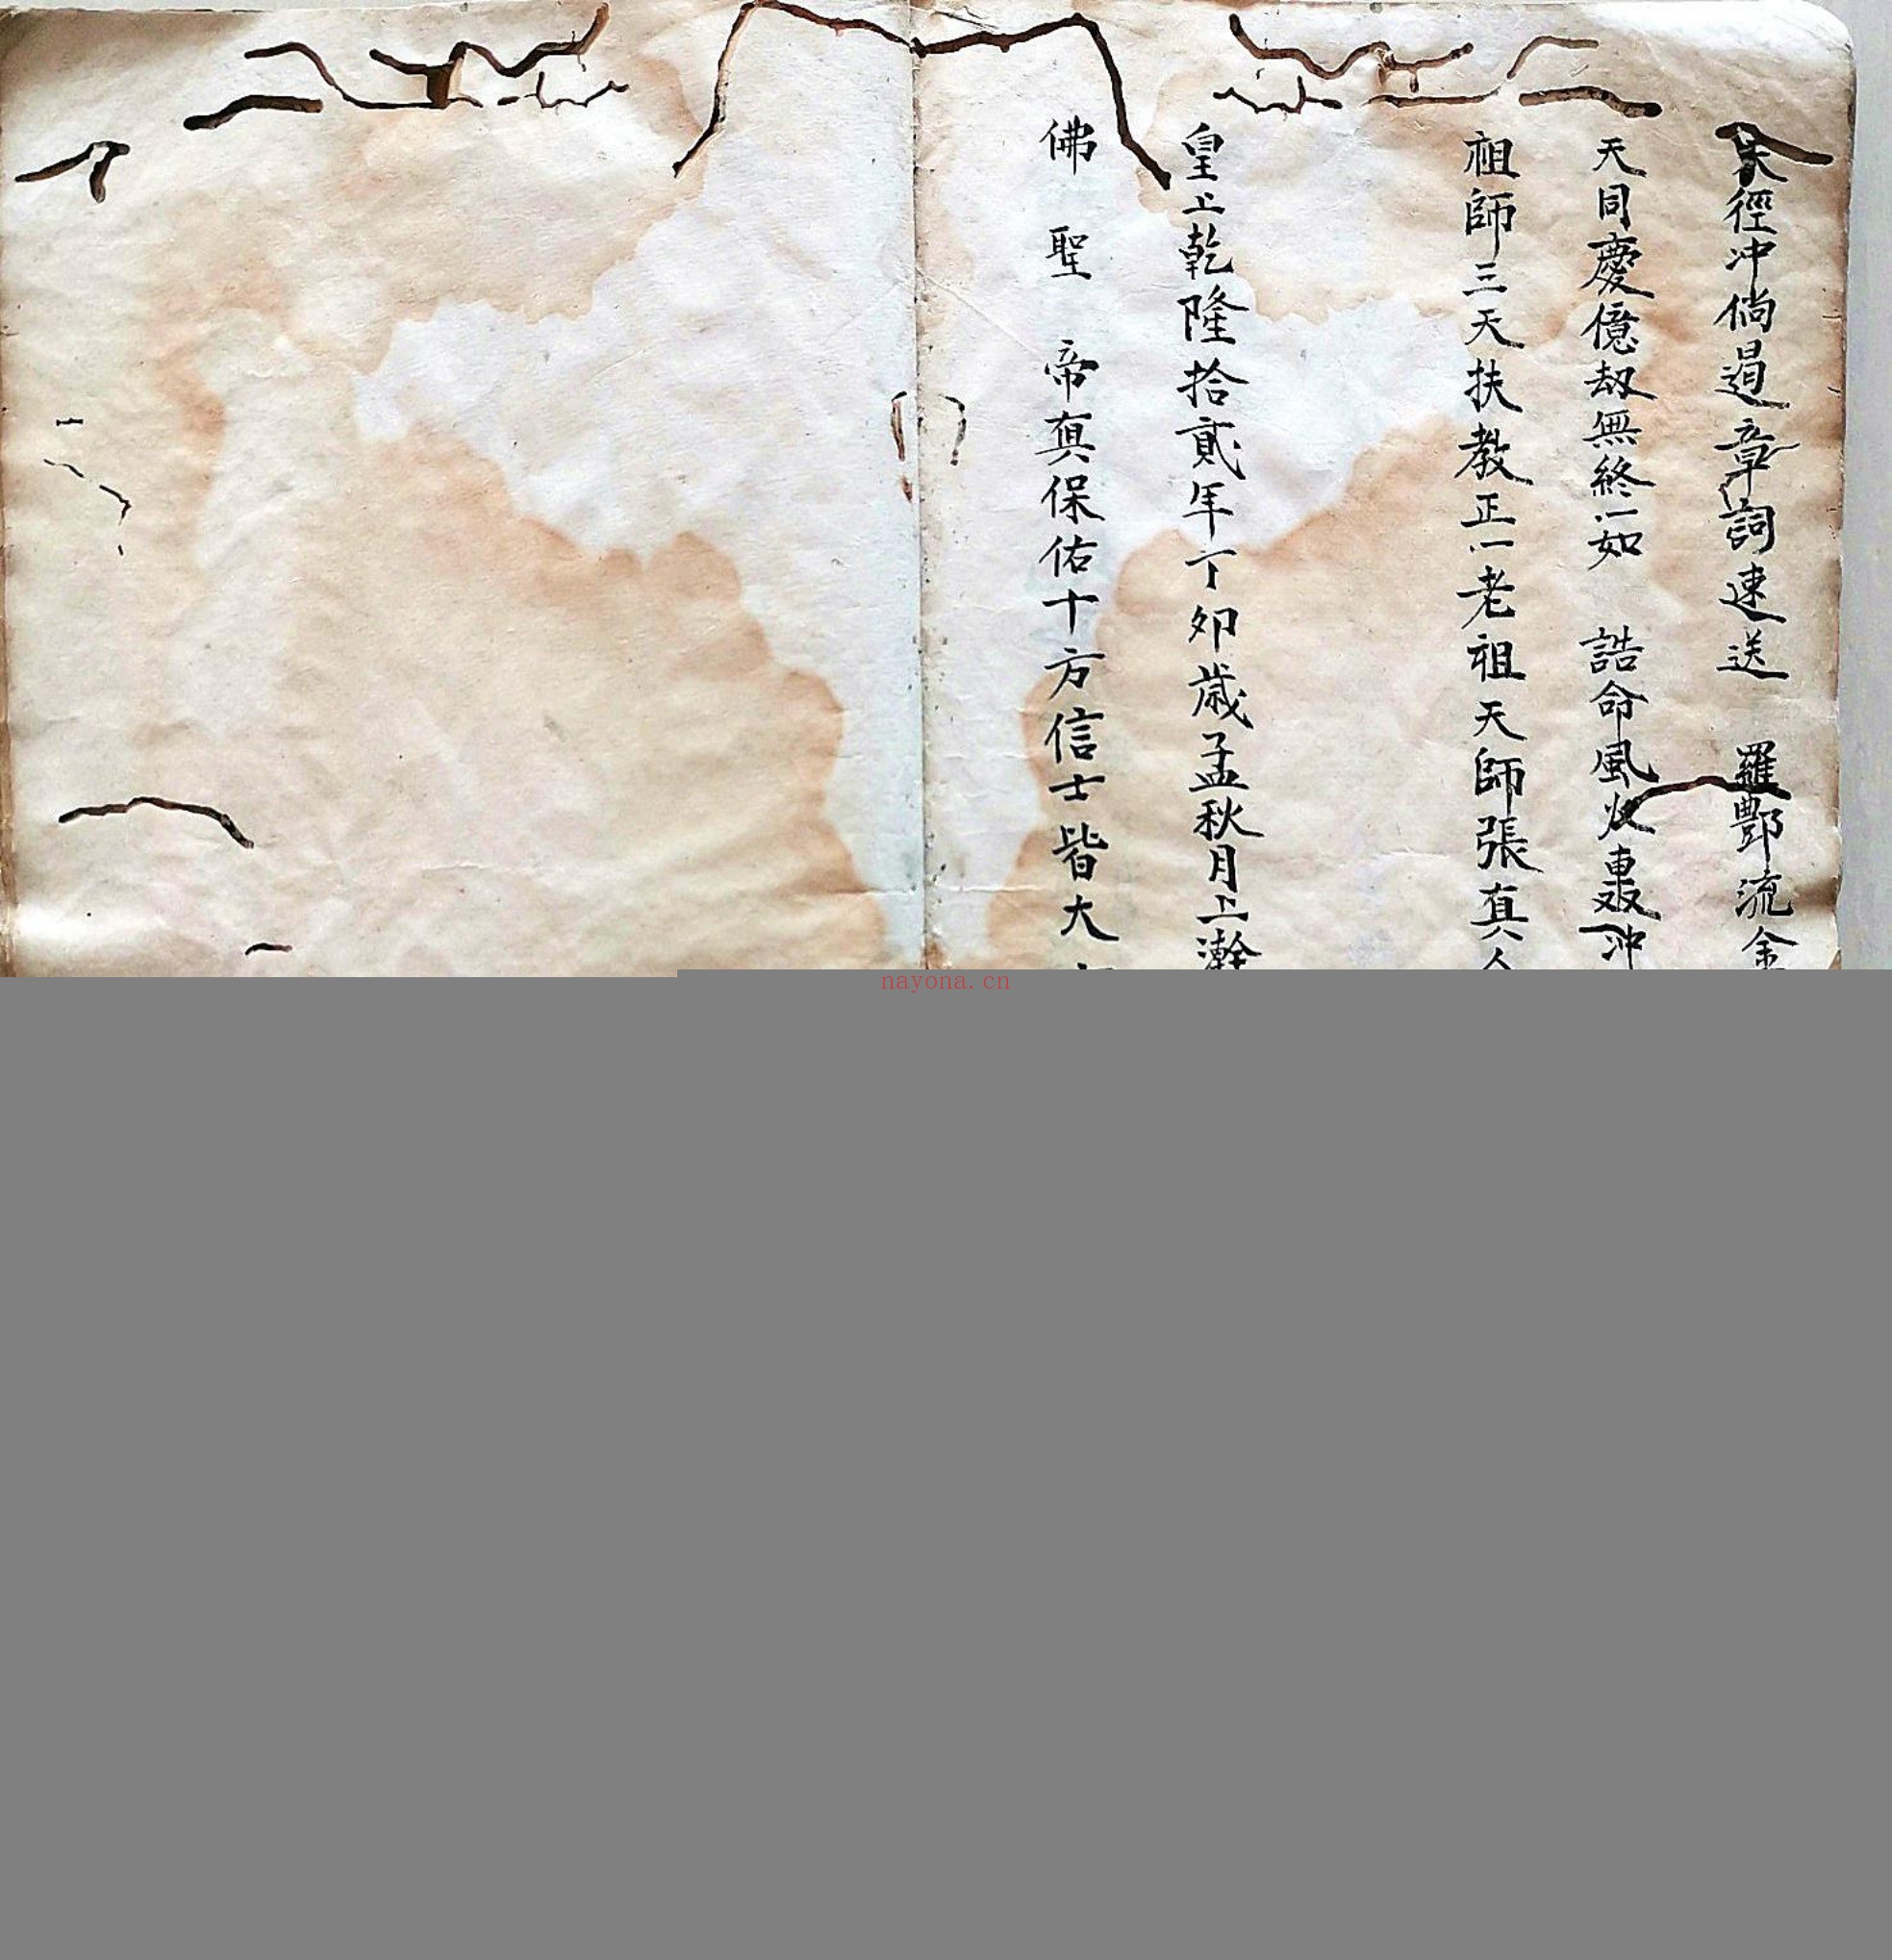 徑冲倘過章詞速送　羅酆流金
天同慶億劫無終一如　誥命風火轟冲
祖師三天扶教正一老祖天師張真人
皇上乾隆拾貳年丁卯歲孟秋月上澣
佛　聖　帝真保佑十方信士皆大
nayona.cn